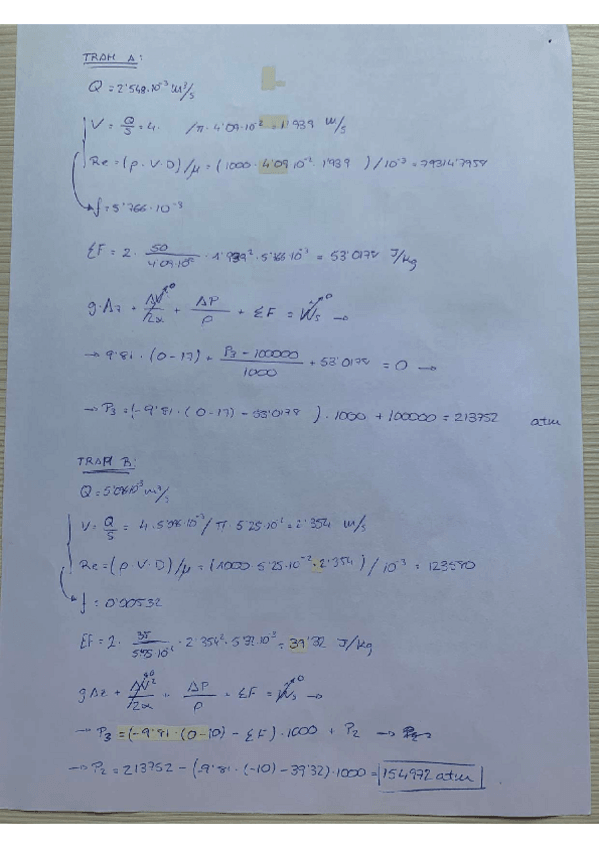 TRAM A:
Q = 2'548·10⁻³ m³/s
V = Q/S = 4· /π·4'09·10⁻² = 1'939 m/s
Re = (ρ·V·D)/μ = (1000·4'09·10⁻²·1'939 )/10⁻³ = 79314'7958
f = 5'766·10⁻³
ΣF = 2· 50/4'09·10⁻² ·1'939²·5'766·10⁻³ = 53'0178 J/kg
g·Δz + ΔV²/2α + ΔP/ρ + ΣF = Ws →
→ 9'81·(0-17) + P3-100000/1000 + 53'0178 = 0 →
→ P3 = (-9'81·(0-17) - 53'0178 )·1000 + 100000 = 213752 atm
TRAM B:
Q = 5'096·10⁻³ m³/s
V = Q/S = 4·5'096·10⁻³/π·5'25·10⁻² = 2'354 m/s
Re = (ρ·V·D)/μ = (1000·5'25·10⁻²·2'354 )/10⁻³ = 123590
f = 0'00532
ΣF = 2· 35/5'25·10⁻² ·2'354²·5'32·10⁻³ = 39'32 J/kg
gΔz + ΔV²/2α + ΔP/ρ + ΣF = Ws →
→ P3 = (-9'81·(0-10) - ΣF)·1000 + P2 →
→ P2 = 213752 - (-9'81·(-10) - 39'32)·1000 = 154972 atm